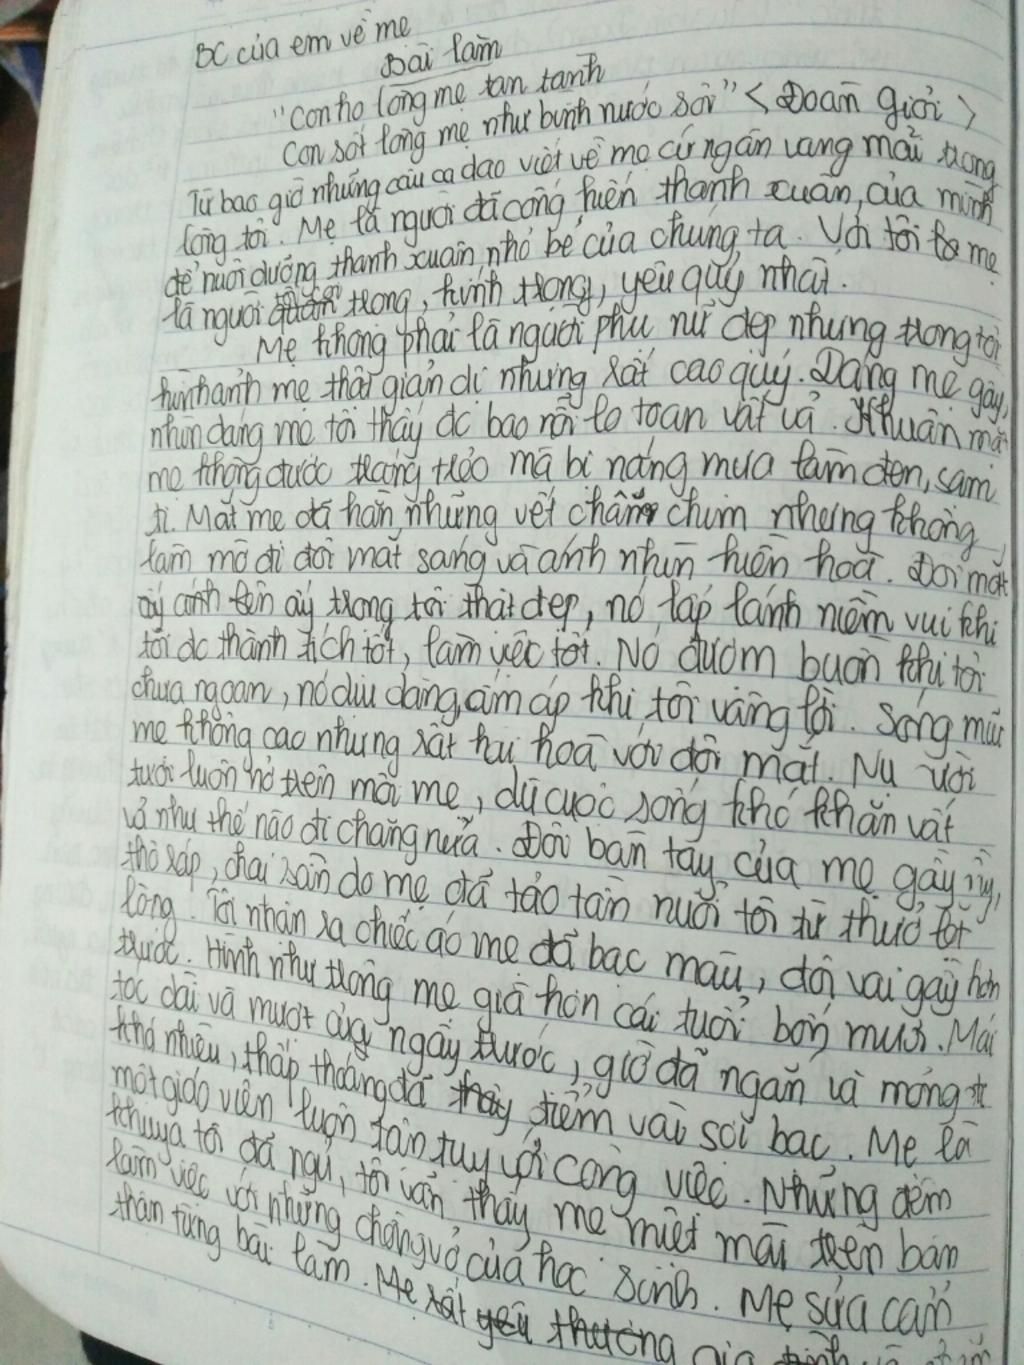 BC của em về mẹ
Bài làm
"Con ho lòng mẹ tan tành
Con sốt lòng mẹ như bình nước sôi" < Đoàn giỏi >
Từ bao giờ những câu ca dao viết về mẹ cứ ngân vang mãi trong
lòng tôi. Mẹ là người đã cống hiến thanh xuân của mình
để nuôi dưỡng thanh xuân nhỏ bé của chúng ta. Với tôi mẹ
là người trọng, kính trọng, yêu quý nhất.
Mẹ không phải là người phụ nữ đẹp nhưng trong tôi
hình ảnh mẹ thật giản dị nhưng rất cao quý. Dáng mẹ gầy,
nhìn dáng mẹ tôi thấy đc bao nỗi lo toan vất vả. Khuân mặt
mẹ không được trắng trẻo mà bị nắng mưa làm đen, sạm
đi. Mắt mẹ đã hằn những vết chân chim nhưng không
làm mờ đi đôi mắt sáng và ánh nhìn hiền hoà. Đôi mắt
ấy ánh lên ấy trong tôi thật đẹp, nó lấp lánh niềm vui khi
tôi đc thành tích tốt, làm việc tốt. Nó đượm buồn khi tôi
chưa ngoan, nó dịu dàng, ấm áp khi tôi vâng lời. Sống mũi
mẹ không cao nhưng rất hài hoà với đôi mắt. Nụ cười
tươi luôn nở trên môi mẹ, dù cuộc sống khó khăn vất
vả như thế nào đi chăng nữa. Đôi bàn tay của mẹ gầy
thô ráp, chai sần do mẹ đã tảo tần nuôi tôi từ thuở lọt
lòng. Tôi nhận ra chiếc áo mẹ đã bạc màu, đôi vai gầy hơn
trước. Hình như trông mẹ già hơn cái tuổi bốn mươi. Mái
tóc dài và mượt của ngày trước, giờ đã ngắn và mỏng đi
khá nhiều, thấp thoáng đã thấy điểm vài sợi bạc. Mẹ là
một giáo viên luôn tận tuỵ với công việc. Những đêm
khuya tôi đã ngủ, tôi vẫn thấy mẹ miệt mài trên bàn
làm việc với những chồng vở của học sinh. Mẹ sửa cẩn
thân từng bài làm. Mẹ rất yêu thương gia đình